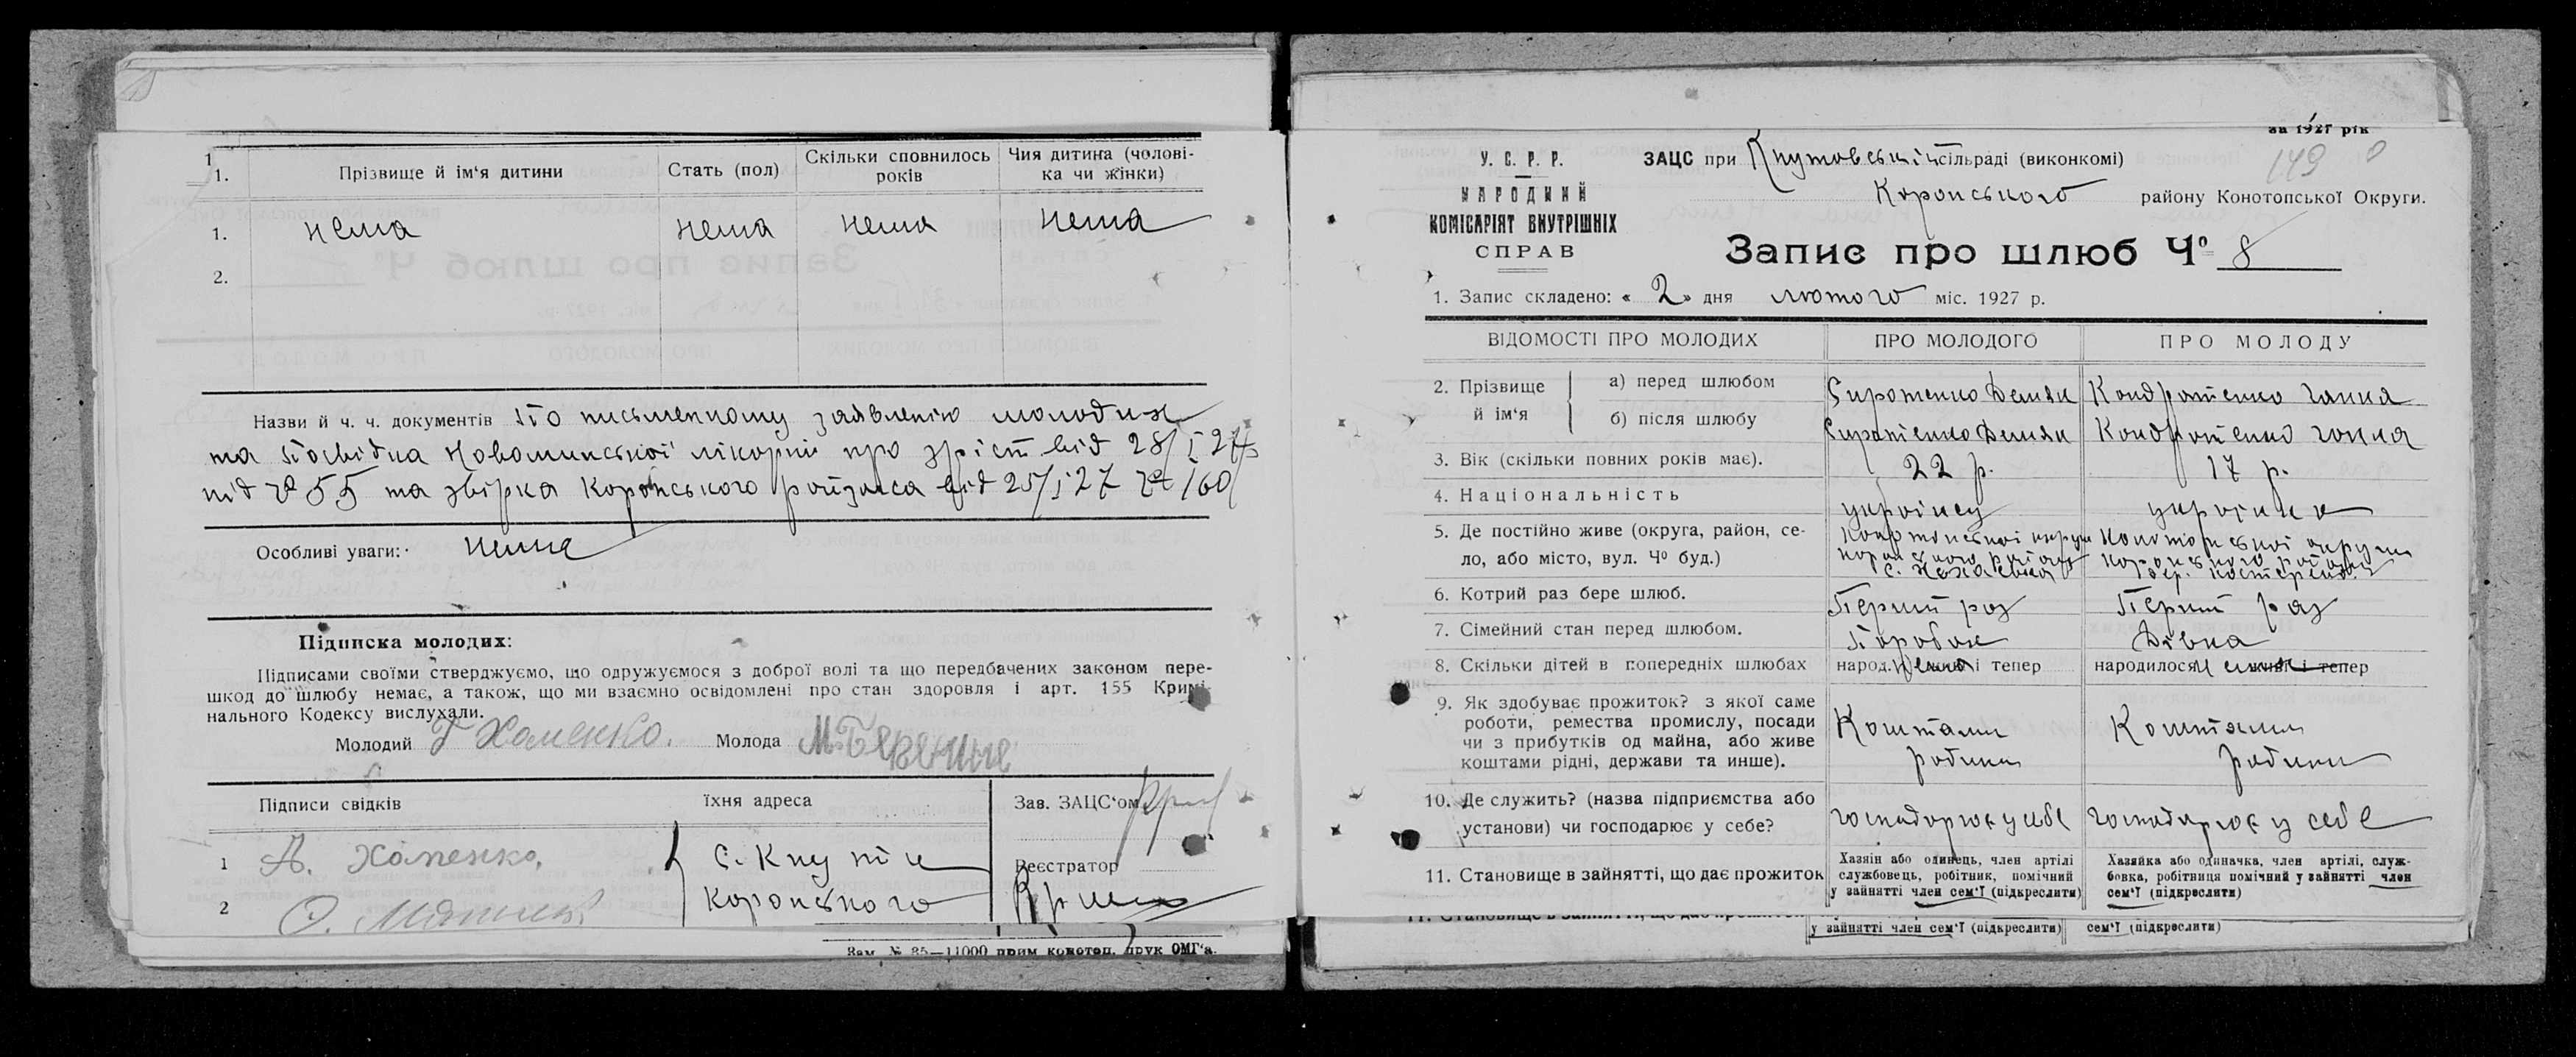 1.
1. Прізвище й ім‘я дитини Стать (пол) Скільки сповнилось років Чия дитина (чолові-ка чи жінки)
1. нема нема нема нема
2.
Назви й ч. ч. документів по письменному заявленію молодих
та посвідка Новомлинської лікарні про зріст від 28/I 27 р
під № 55 та збірка Коропського від 25/I 27 № 160
Особливі уваги: нема
Підписка молодих:
Підписами своїми стверджуємо, що одружуємося з доброї волі та що передбачених законом пере-
шкод до шлюбу немає, а також, що ми взаємно освідомлені про стан здоровля і арт. 155 Кримі-
нального Кодексу вислухали.
Молодий Г Хоменко. Молода М.
Підписи свідків їхня адреса Зав. ЗАЦС‘ом
1 А. Хоменко. с. Кнути
Реєстратор
2 О. Коропського
Зам. № 85—11000 прим конотоп. друк ОМГ‘а.
за 1927 рік
149
У. С. Р. Р.
НАРОДНИЙ
КОМІСАРІЯТ ВНУТРІШНІХ
СПРАВ
ЗАЦС при Кнутовській сільраді (виконкомі)
Коропського району Конотопської Округи.
Запис про шлюб Ч⁰ 8
1. Запис складено: « 2 » дня лютого міс. 1927 р.
ВІДОМОСТІ ПРО МОЛОДИХ ПРО МОЛОДОГО ПРО МОЛОДУ
2. Прізвище й ім‘я
а) перед шлюбом Сиротенко Демян Кондратенко Ганна
б) після шлюбу Сиротенко Демян Кондратенко Ганна
3. Вік (скільки повних років має). 22 р. 17 р.
4. Національність українец українка
5. Де постійно живе (округа, район, се-
ло, або місто, вул. Ч⁰ буд.)
Конотопської округи
Коропського району
с. Нехаевка
Конотопської округи
Коропського району
6. Котрий раз бере шлюб. Перший раз Перший раз
7. Сімейний стан перед шлюбом. Паробок Дівка
8. Скільки дітей в попередніх шлюбах народ. нема і тепер народилося нема живі і тепер
9. Як здобуває прожиток? з якої саме
роботи, ремества промислу, посади
чи з прибутків од майна, або живе
коштами рідні, держави та инше).
Коштами
родини
Коштами
родини
10. Де служить? (назва підприємства або
установи) чи господарює у себе?
господарює у себе господарює у себе
11. Становище в зайнятті, що дає прожиток
Хазяін або одинець, член артілі
службовець, робітник, помічний
у зайнятті член сем‘ї (підкреслити)
Хазяйка або одиначка, член артілі, служ-
бовка, робітниця помічний у зайнятті член
сем‘ї (підкреслити)
11. Становище в зайнятті, що дає прожиток
у зайнятті член сем‘ї (підкреслити) сем‘ї (підкреслити)